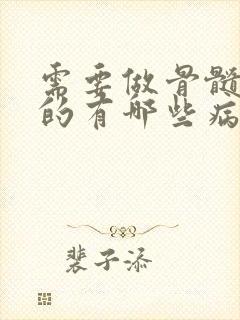 需要做骨髓
的有哪些病
裴子添